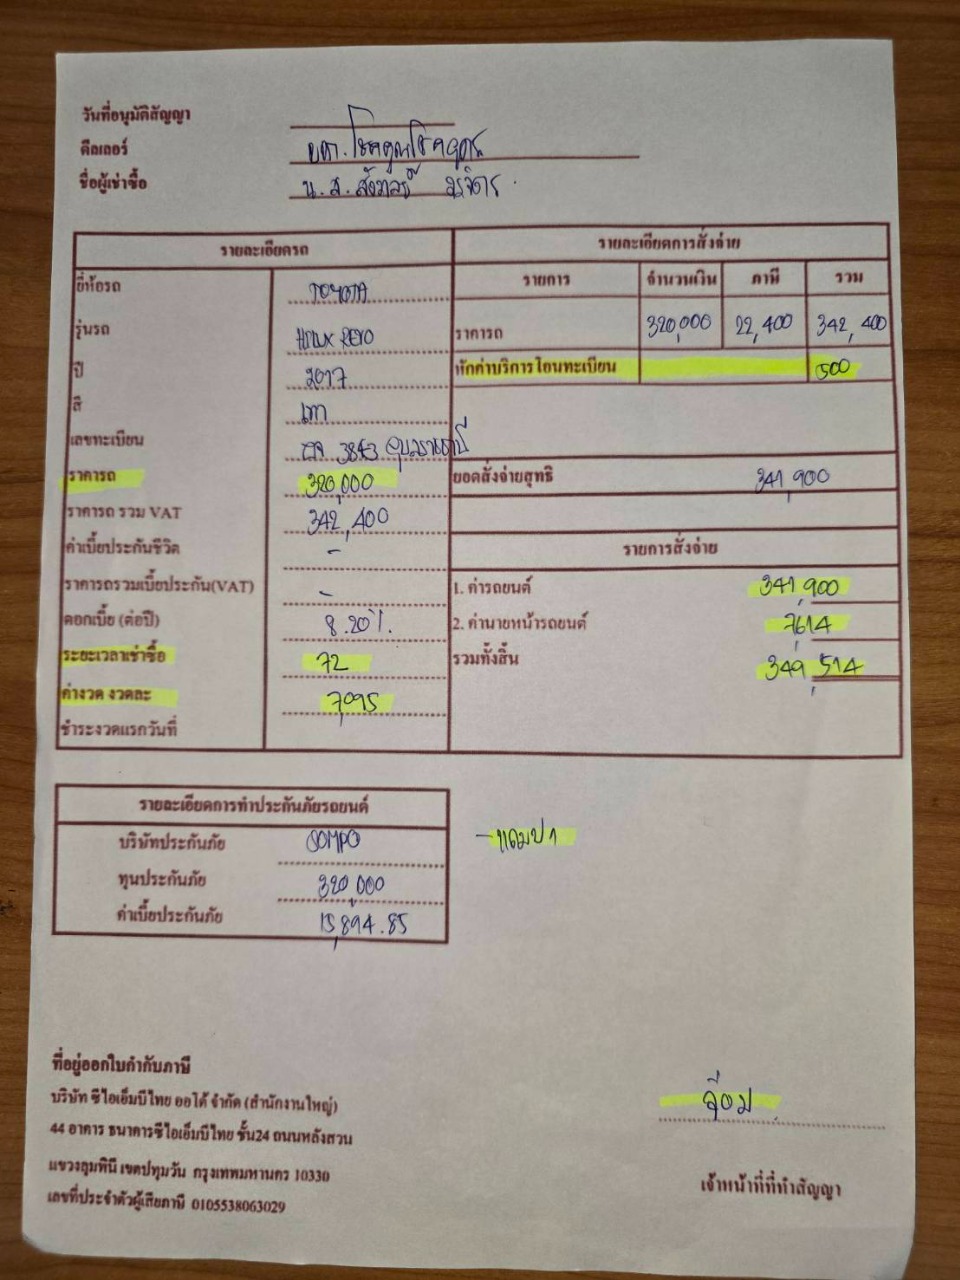 วันที่อนุมัติสัญญา
ดีลเลอร์ บจก. โชคคูณโชคอุดร
ชื่อผู้เช่าซื้อ น.ส.
รายละเอียดรถ
ยี่ห้อรถ TOYOTA
รุ่นรถ HILUX REVO
ปี 2017
สี เทา
เลขทะเบียน 3843 อุบลราชธานี
ราคารถ 320,000
ราคารถ รวม VAT 342,400
ค่าเบี้ยประกันชีวิต -
ราคารถรวมเบี้ยประกัน(VAT) -
ดอกเบี้ย (ต่อปี) 8.20%
ระยะเวลาเช่าซื้อ 72
ค่างวด งวดละ 7,095
ชำระงวดแรกวันที่
รายละเอียดการสั่งจ่าย
รายการ จำนวนเงิน ภาษี รวม
ราคารถ 320,000 22,400 342,400
หักค่าบริการโอนทะเบียน 500
ยอดสั่งจ่ายสุทธิ 341,900
รายการสั่งจ่าย
1. ค่ารถยนต์ 341,900
2. ค่านายหน้ารถยนต์ 7,614
รวมทั้งสิ้น 349,514
รายละเอียดการทำประกันภัยรถยนต์
บริษัทประกันภัย SOMPO
ทุนประกันภัย 320,000
ค่าเบี้ยประกันภัย 15,894.85
- แถมป1
ที่อยู่ออกใบกำกับภาษี
บริษัท ซีไอเอ็มบีไทย ออโต้ จำกัด (สำนักงานใหญ่)
44 อาคาร ธนาคารซีไอเอ็มบีไทย ชั้น24 ถนนหลังสวน
แขวงลุมพินี เขตปทุมวัน กรุงเทพมหานคร 10330
เลขที่ประจำตัวผู้เสียภาษี 0105538063029
เจ้าหน้าที่ที่ทำสัญญา